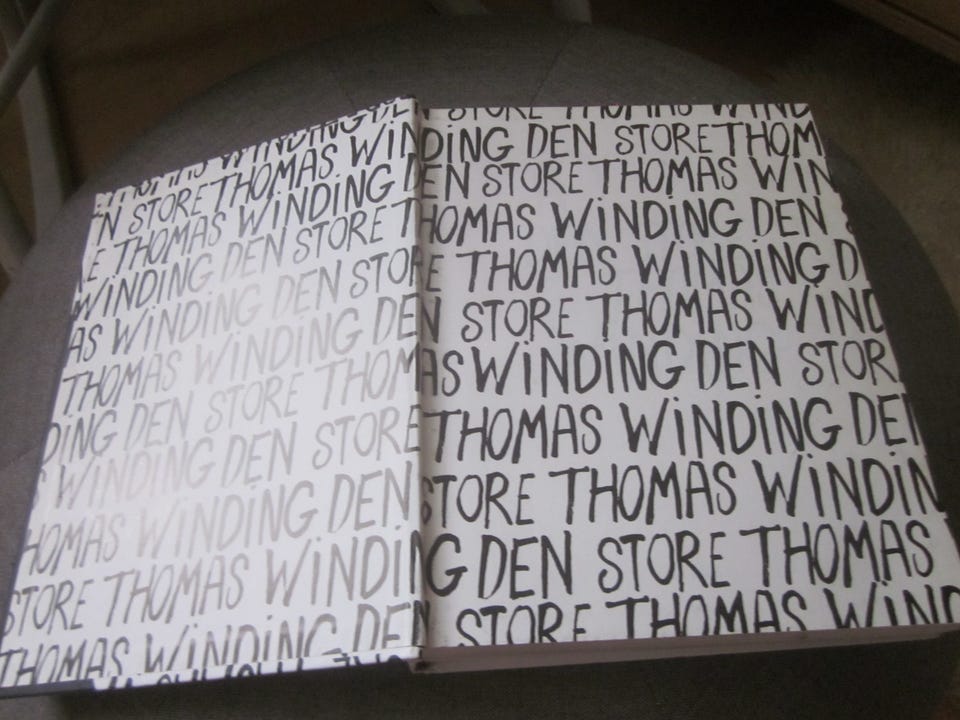 THOMAS WINDING DEN STORE THOMAS WIND
N STORE THOMAS WINDING DEN STORE THOM
E THOMAS WINDING DEN STORE THOMAS WIN
WINDING DEN STORE THOMAS WINDING DEN S
AS WINDING DEN STORE THOMAS WINDING D
THOMAS WINDING DEN STORE THOMAS WIND
DING DEN STORE THOMAS WINDING DEN STOR
S WINDING DEN STORE THOMAS WINDING DEN
HOMAS WINDING DEN STORE THOMAS WINDIN
STORE THOMAS WINDING DEN STORE THOMAS
THOMAS WINDING DEN STORE THOMAS WIND